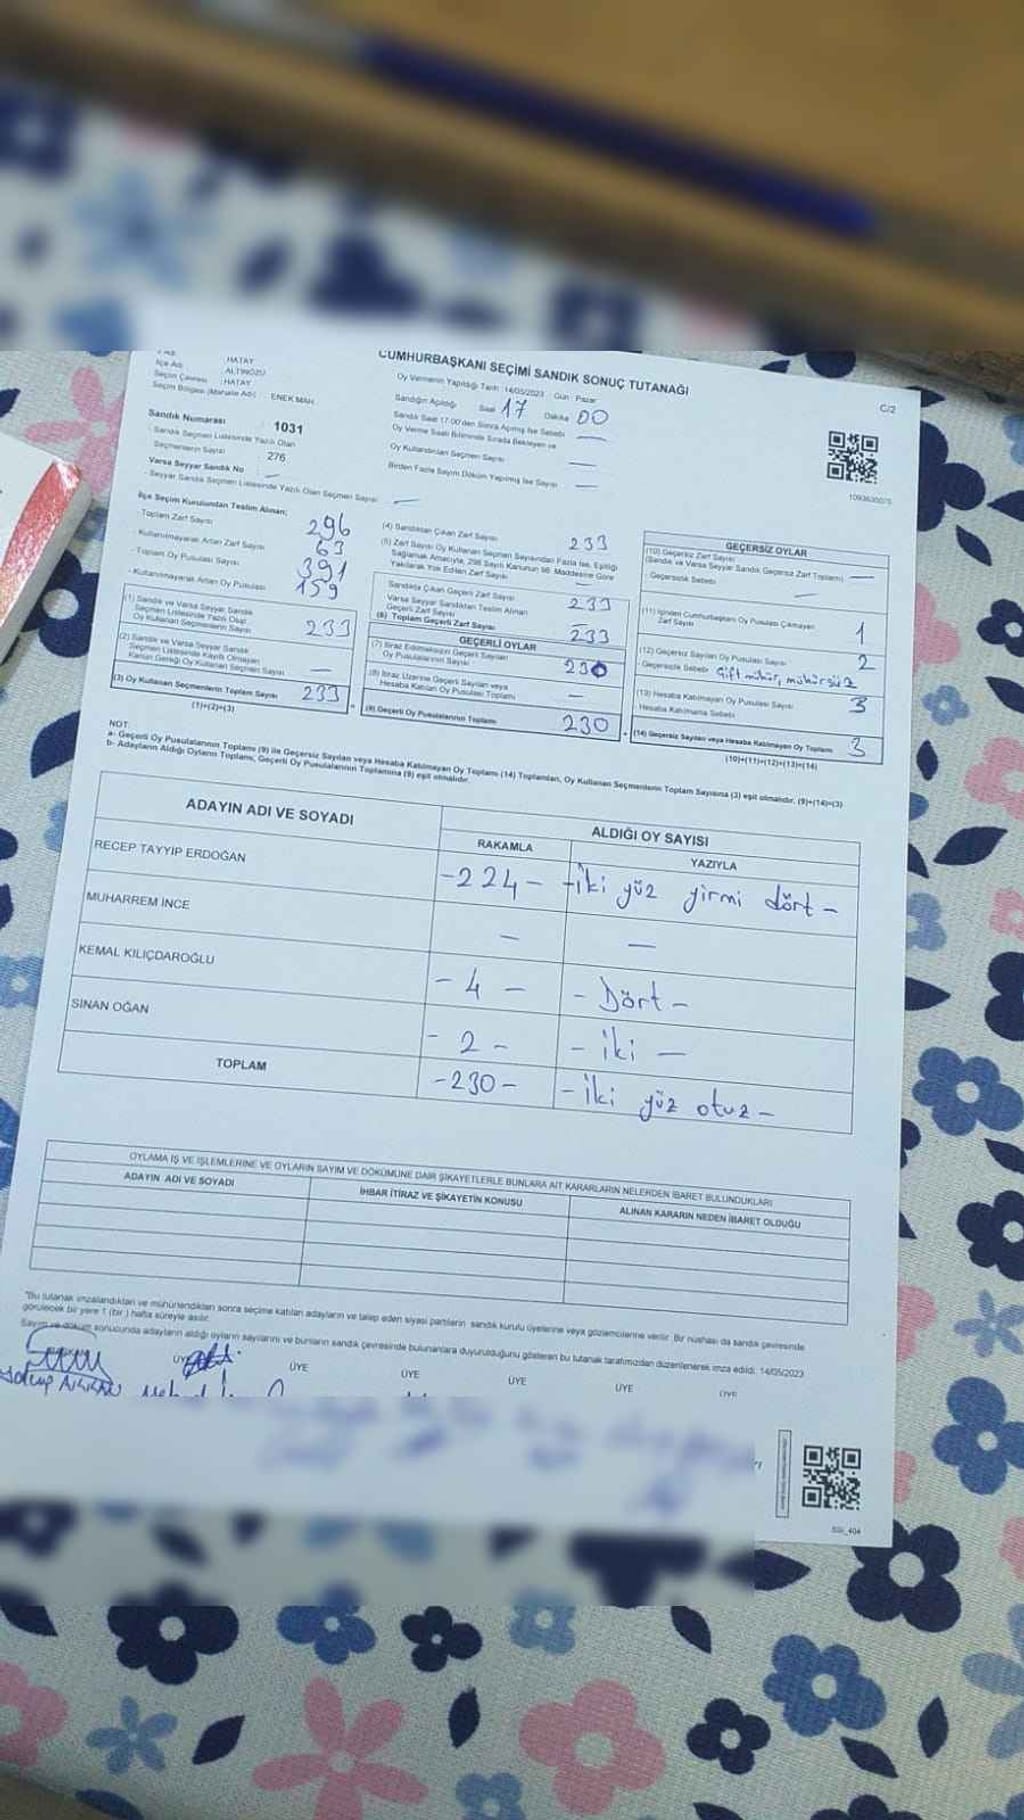 HATAY
CUMHURBAŞKANI SEÇİMİ SANDIK SONUÇ TUTANAĞI
C/2
İlçe Adı : ALTINÖZÜ
Seçim Çevresi : HATAY
Seçim Bölgesi (Mahalle Adı) : ENEK MAH.
Oy Vermenin Yapıldığı Tarih : 14/05/2023 Gün : Pazar
Sandığın Açıldığı Saat 17 Dakika 00
Sandık Saat 17:00'den Sonra Açılmış İse Sebebi —
Oy Verme Saati Bitiminde Sırada Bekleyen ve
Oy Kullandırılan Seçmen Sayısı —
Birden Fazla Sayım Döküm Yapılmış İse Sayısı —
Sandık Numarası 1031
Sandık Seçmen Listesinde Yazılı Olan
Seçmenlerin Sayısı 276
Varsa Seyyar Sandık No —
Seyyar Sandık Seçmen Listesinde Yazılı Olan Seçmen Sayısı —
1093630075
İlçe Seçim Kurulundan Teslim Alınan;
Toplam Zarf Sayısı 296
Kullanılmayarak Artan Zarf Sayısı 63
Toplam Oy Pusulası Sayısı 391
Kullanılmayarak Artan Oy Pusulası 159
(1) Sandık ve Varsa Seyyar Sandık
Seçmen Listesinde Yazılı Olup
Oy Kullanan Seçmenlerin Sayısı 233
(2) Sandık ve Varsa Seyyar Sandık
Seçmen Listesinde Kayıtlı Olmayan
Kanun Gereği Oy Kullanan Seçmen Sayısı —
(3) Oy Kullanan Seçmenlerin Toplam Sayısı 233
(1)+(2)=(3)
(4) Sandıktan Çıkan Zarf Sayısı 233
(5) Zarf Sayısı Oy Kullanan Seçmen Sayısından Fazla İse, Eşitliği
Sağlamak Amacıyla, 298 Sayılı Kanunun 98. Maddesine Göre
Yakılarak Yok Edilen Zarf Sayısı —
Sandıkta Çıkan Geçerli Zarf Sayısı 233
Varsa Seyyar Sandıktan Teslim Alınan
Geçerli Zarf Sayısı —
(6) Toplam Geçerli Zarf Sayısı 233
GEÇERLİ OYLAR
(7) İtiraz Edilmeksizin Geçerli Sayılan
Oy Pusulalarının Sayısı 230
(8) İtiraz Üzerine Geçerli Sayılan veya
Hesaba Katılan Oy Pusulası Toplamı —
(9) Geçerli Oy Pusulalarının Toplamı 230
GEÇERSİZ OYLAR
(10) Geçersiz Zarf Sayısı
(Sandık ve Varsa Seyyar Sandık Geçersiz Zarf Toplamı) —
Geçersizlik Sebebi —
(11) İçinden Cumhurbaşkanı Oy Pusulası Çıkmayan
Zarf Sayısı 1
(12) Geçersiz Sayılan Oy Pusulası Sayısı 2
Geçersizlik Sebebi Çift mühür, mühürsüz
(13) Hesaba Katılmayan Oy Pusulası Sayısı 3
Hesaba Katılmama Sebebi
(14) Geçersiz Sayılan veya Hesaba Katılmayan Oy Toplamı 3
(10)+(11)+(12)+(13)=(14)
NOT:
a- Geçerli Oy Pusulalarının Toplamı (9) ile Geçersiz Sayılan veya Hesaba Katılmayan Oy Toplamı (14) Toplamları, Oy Kullanan Seçmenlerin Toplam Sayısına (3) eşit olmalıdır. (9)+(14)=(3)
b- Adayların Aldığı Oyların Toplamı, Geçerli Oy Pusulalarının Toplamına (9) eşit olmalıdır.
ADAYIN ADI VE SOYADI
ALDIĞI OY SAYISI
RAKAMLA YAZIYLA
RECEP TAYYIP ERDOĞAN -224- -iki yüz yirmi dört-
MUHARREM İNCE — —
KEMAL KILIÇDAROĞLU -4- -Dört-
SİNAN OĞAN -2- -iki-
TOPLAM -230- -iki yüz otuz-
OYLAMA İŞ VE İŞLEMLERİNE VE OYLARIN SAYIM VE DÖKÜMÜNE DAİR ŞİKAYETLERLE BUNLARA AİT KARARLARIN NELERDEN İBARET BULUNDUKLARI
ADAYIN ADI VE SOYADI İHBAR İTİRAZ VE ŞİKAYETİN KONUSU ALINAN KARARIN NEDEN İBARET OLDUĞU
*Bu tutanak imzalandıktan ve mühürlendikten sonra seçime katılan adayların ve talep eden siyasi partilerin sandık kurulu üyelerine veya gözlemcilerine verilir. Bir nüshası da sandık çevresinde
görülecek bir yere 1 (bir) hafta süreyle asılır.
Sayım ve döküm sonucunda adayların aldığı oyların sayılarını ve bunların sandık çevresinde bulunanlara duyurulduğunu gösteren bu tutanak tarafımızdan düzenlenerek imza edildi. 14/05/2023
ÜYE ÜYE ÜYE ÜYE ÜYE